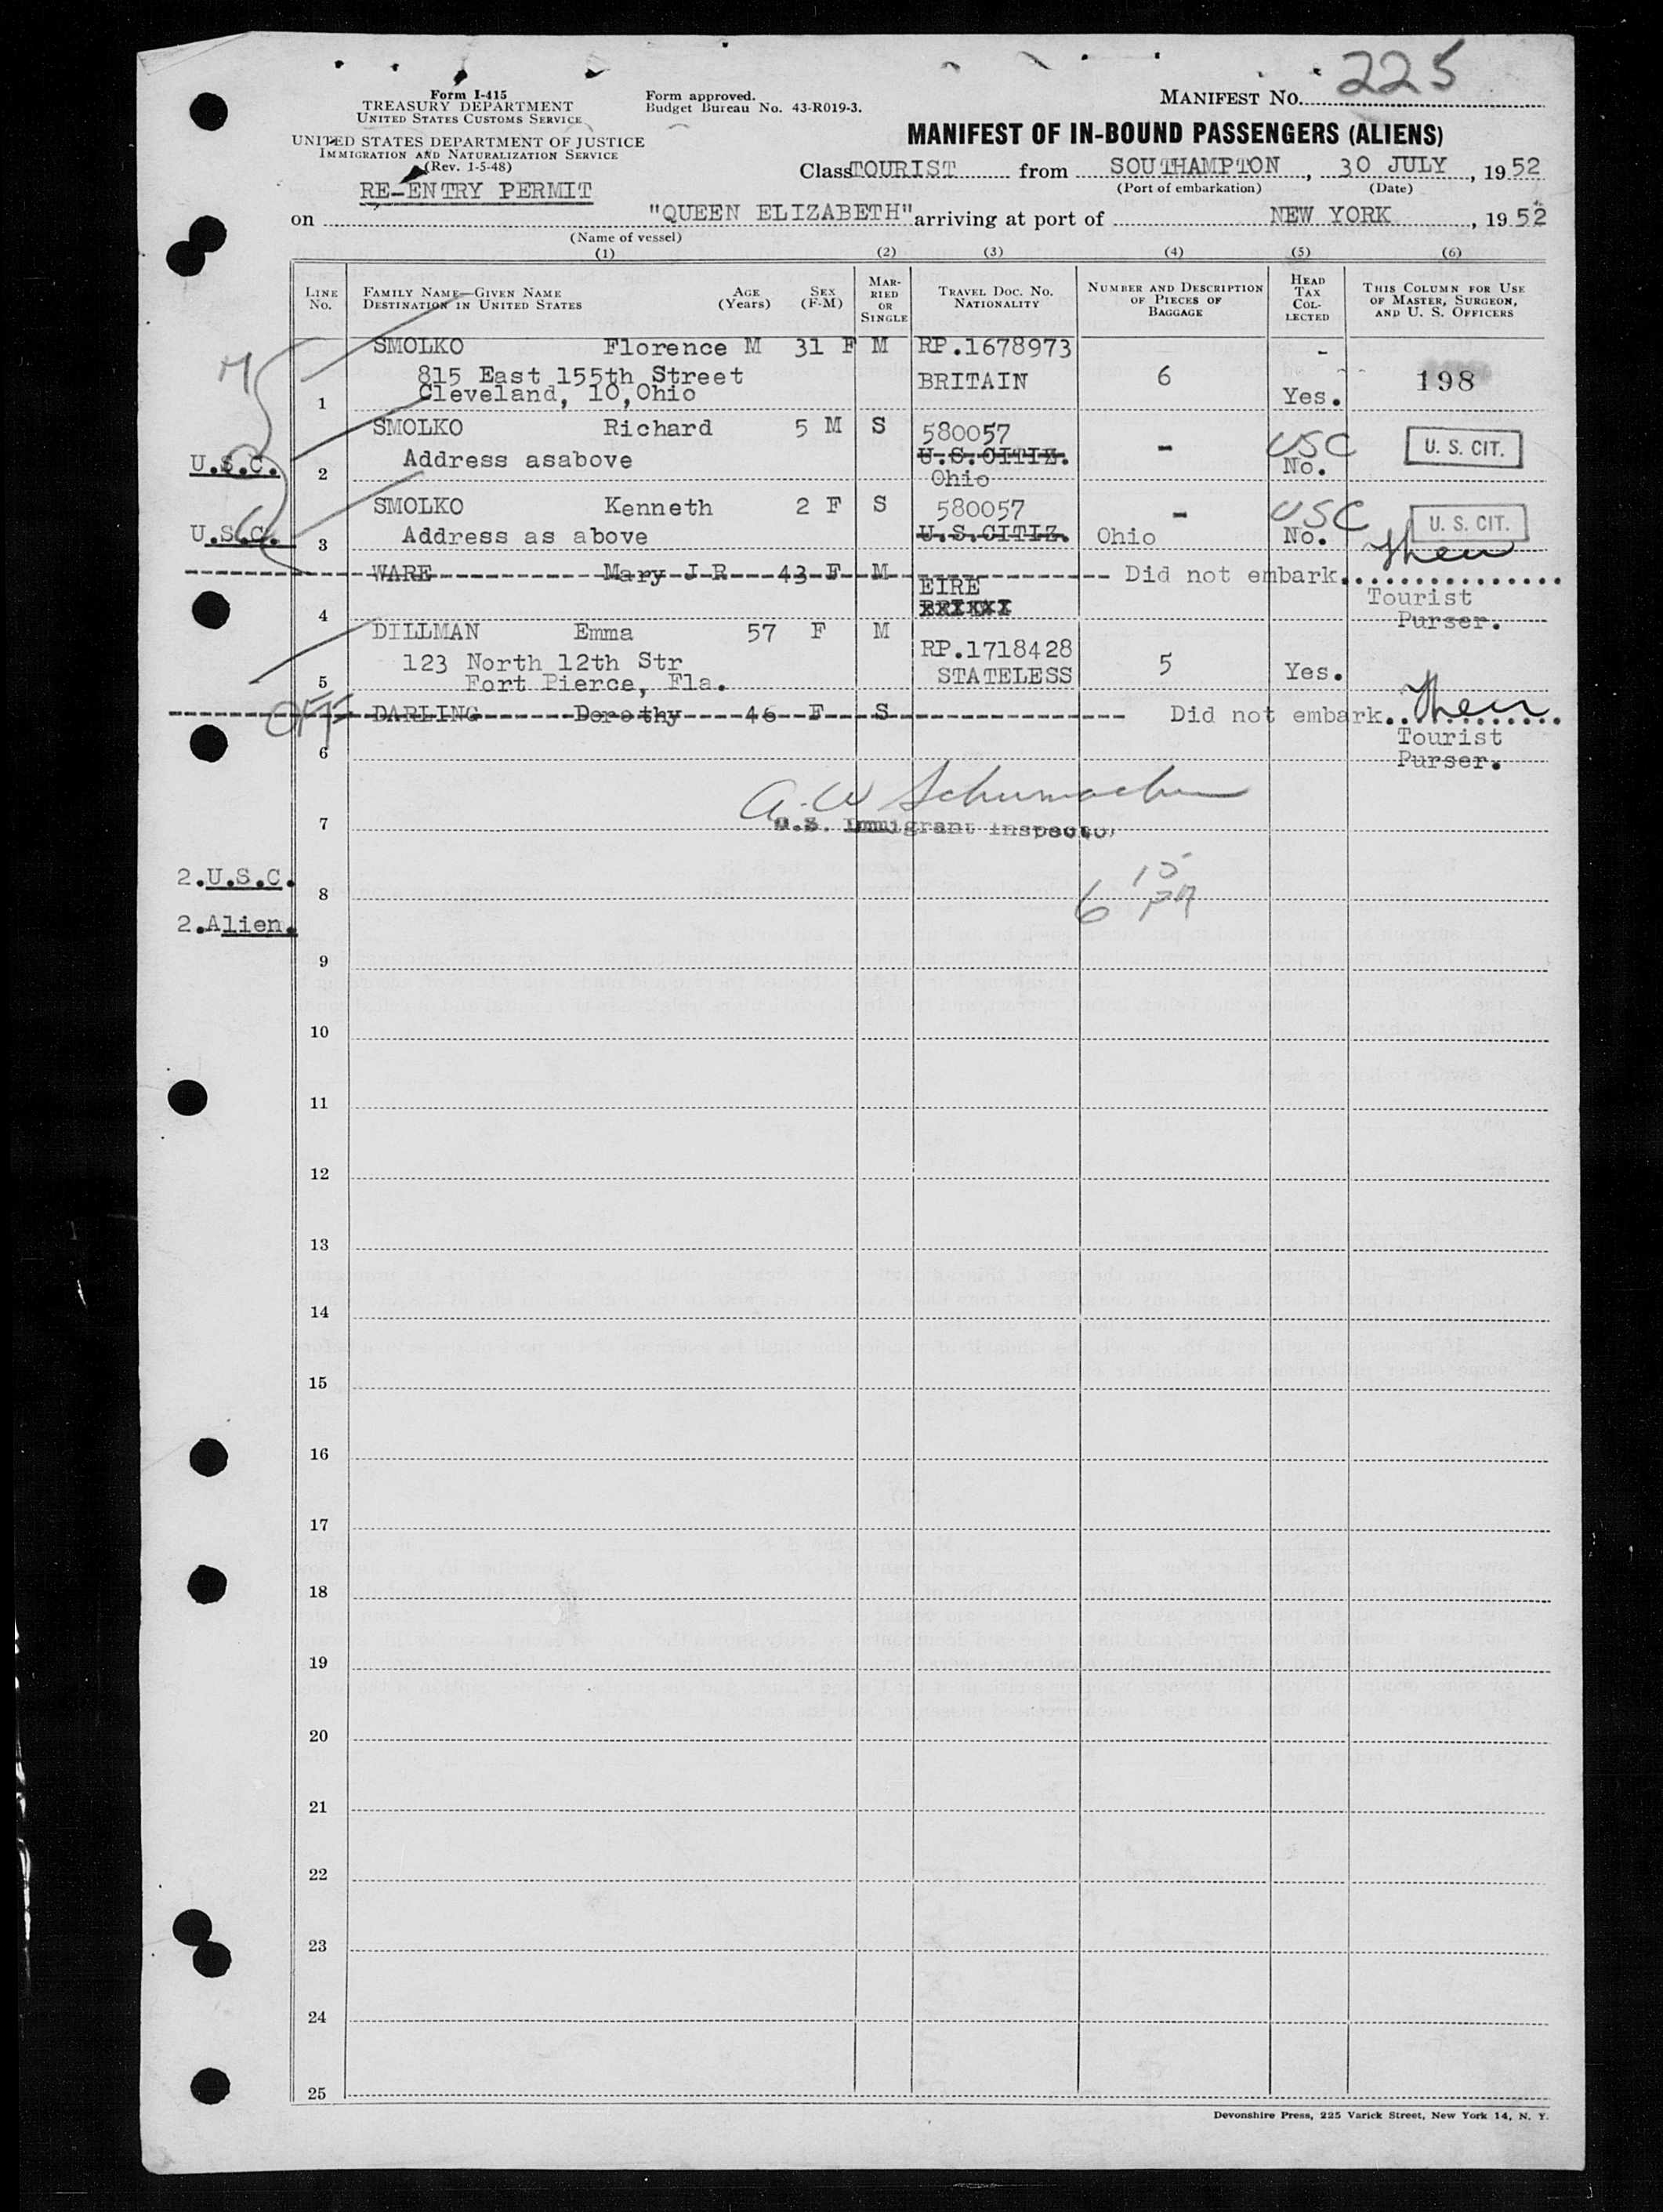 225
Form I-415
TREASURY DEPARTMENT
UNITED STATES CUSTOMS SERVICE
UNITED STATES DEPARTMENT OF JUSTICE
IMMIGRATION AND NATURALIZATION SERVICE
(Rev. 1-5-48)
RE-ENTRY PERMIT
Form approved.
Budget Bureau No. 43-R019-3.
MANIFEST NO.
MANIFEST OF IN-BOUND PASSENGERS (ALIENS)
Class TOURIST from SOUTHAMPTON, 30 JULY, 1952
(Port of embarkation) (Date)
on "QUEEN ELIZABETH" arriving at port of NEW YORK, 1952
(Name of vessel)
(1) (2) (3) (4) (5) (6)
LINE NO.
FAMILY NAME—GIVEN NAME
DESTINATION IN UNITED STATES
AGE (Years)
SEX (F-M)
MARRIED OR SINGLE
TRAVEL DOC. NO. NATIONALITY
NUMBER AND DESCRIPTION OF PIECES OF BAGGAGE
HEAD TAX COLLECTED
THIS COLUMN FOR USE OF MASTER, SURGEON, AND U. S. OFFICERS
SMOLKO Florence M 31 F M RP.1678973 -
815 East 155th Street BRITAIN 6 198
1 Cleveland, 10,Ohio Yes.
SMOLKO Richard 5 M S 580057 USC U. S. CIT.
U.S.C. 2 Address asabove U.S.CITIZ. - No.
Ohio
SMOLKO Kenneth 2 F S 580057 - USC U. S. CIT.
U.S.C. 3 Address as above U.S.CITIZ. Ohio No.
WARE Mary J R 43 F M Did not embark.
EIRE
4 Tourist
Purser.
DILLMAN Emma 57 F M
123 North 12th Str RP.1718428 5 Yes.
5 Fort Pierce, Fla. STATELESS
OFF DARLING Dorothy 46 F S Did not embark.
6 Tourist
Purser.
A. W Schumacher
7 U.S. Immigrant Inspector
2.U.S.C.
8 6 15 PM
2.Alien.
9
10
11
12
13
14
15
16
17
18
19
20
21
22
23
24
25
Devonshire Press, 225 Varick Street, New York 14, N. Y.